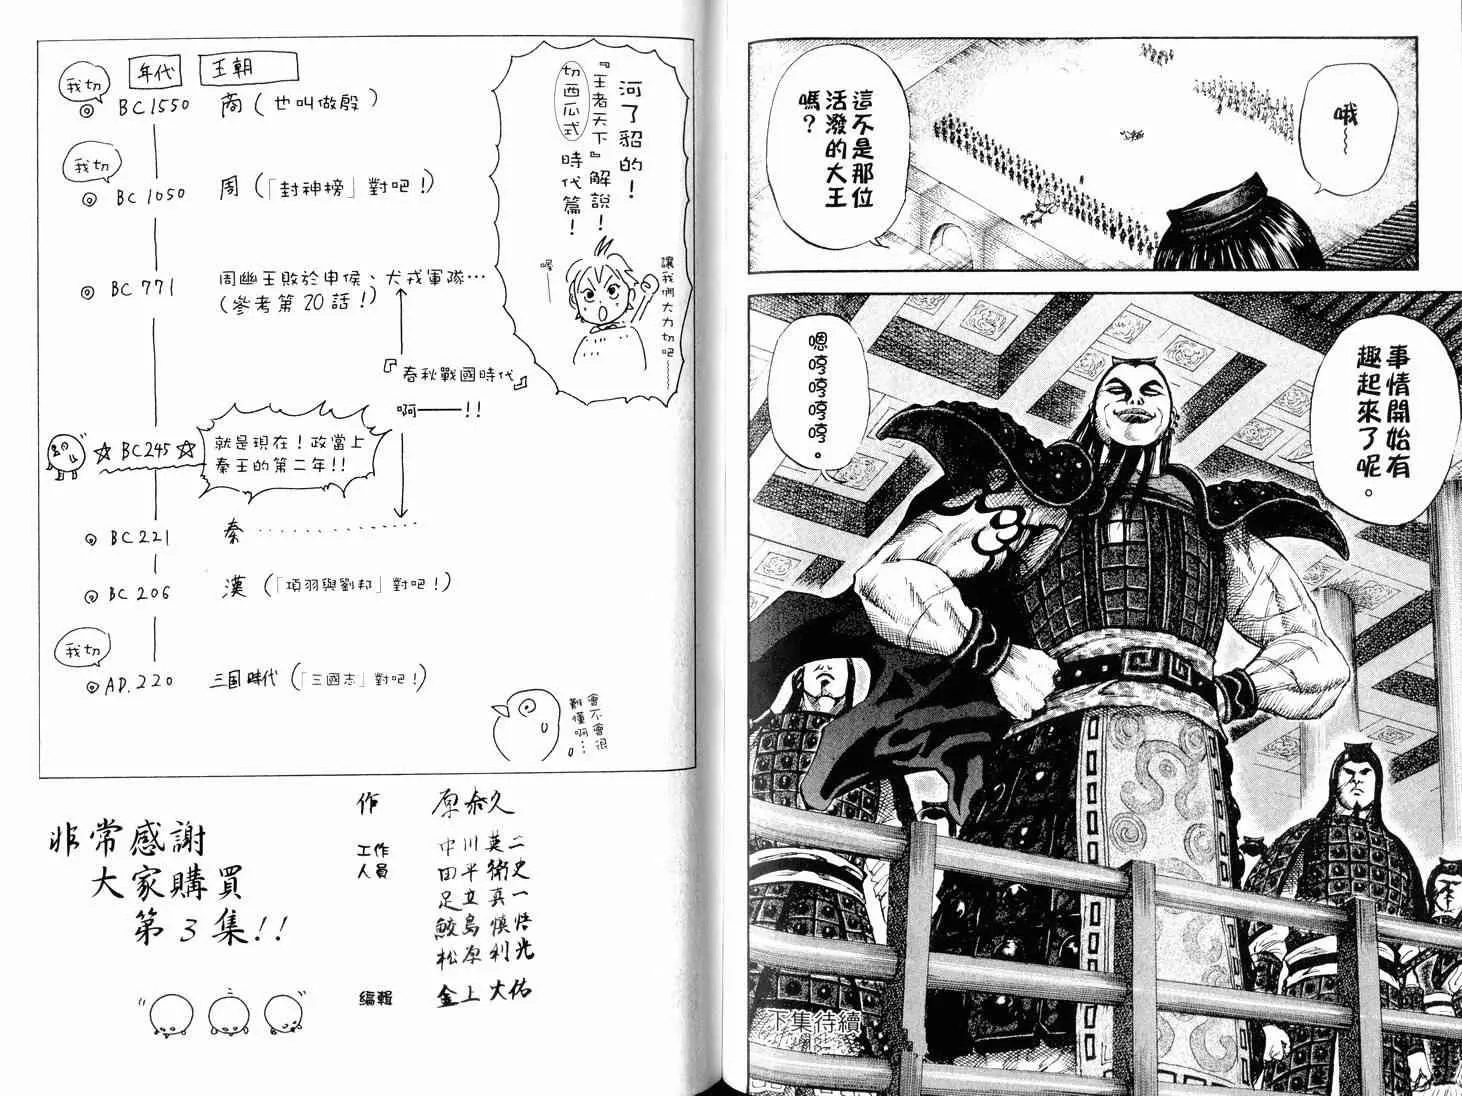 哦～
這不是那位
活潑的大王
嗎？
事情開始有
趣起來了呢。
嗯哼哼哼哼。
下集待續
河了貂的！
『王者天下』解說！
切西瓜式時代篇！
讓我們大力切吧～
喔—
年代
王朝
我切
BC1550 商(也叫做殷)
我切
BC1050 周(「封神榜」對吧！)
BC771 周幽王敗於申侯、犬戎軍隊…
(參考第20話！)
『春秋戰國時代』
啊——！！
☆BC245☆
就是現在！政當上
秦王的第二年！！
BC221 秦
BC206 漢(「項羽與劉邦」對吧！)
我切
AD.220 三国時代(「三國志」對吧！)
會不會很
難懂啊…
非常感謝
大家購買
第3集！！
作 原泰久
工作
人員
中川英二
田平衛史
足立真一
鮫島慎悟
松原利光
編輯 金上大佑